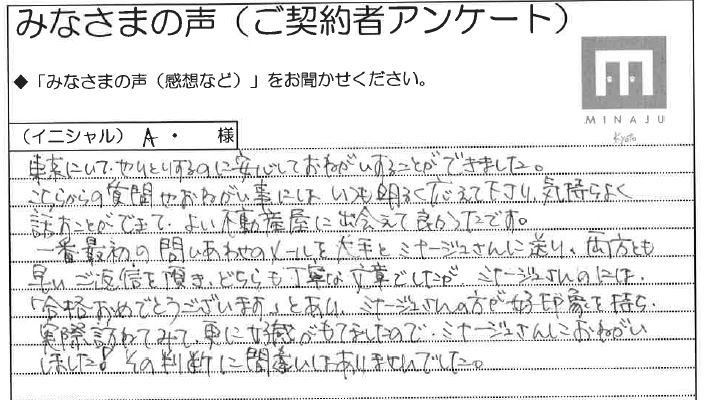 みなさまの声（ご契約者アンケート）
◆「みなさまの声（感想など）」をお聞かせください。
MINAJU
Kyoto
（イニシャル） A ・ 様
東京にいて、やりとりするのに安心しておねがいすることができました。
こちらからの質問やおねがい事にはいつも明るく応えて下さり、気持ちよく
話すことができて、よい不動産屋に出会えて良かったです。
一番最初の問いあわせのメールを大手とミナージュさんに送り、両方とも
早いご返信を頂き、どちらも丁寧な文章でしたが ミナージュさんのには、
「合格おめでとうございます。」とあり、ミナージュさんの方が好印象を持ち、
実際訪ねてみて、更に好感がもてましたので、ミナージュさんにおねがい
しました！ その判断に間違いはありませんでした。